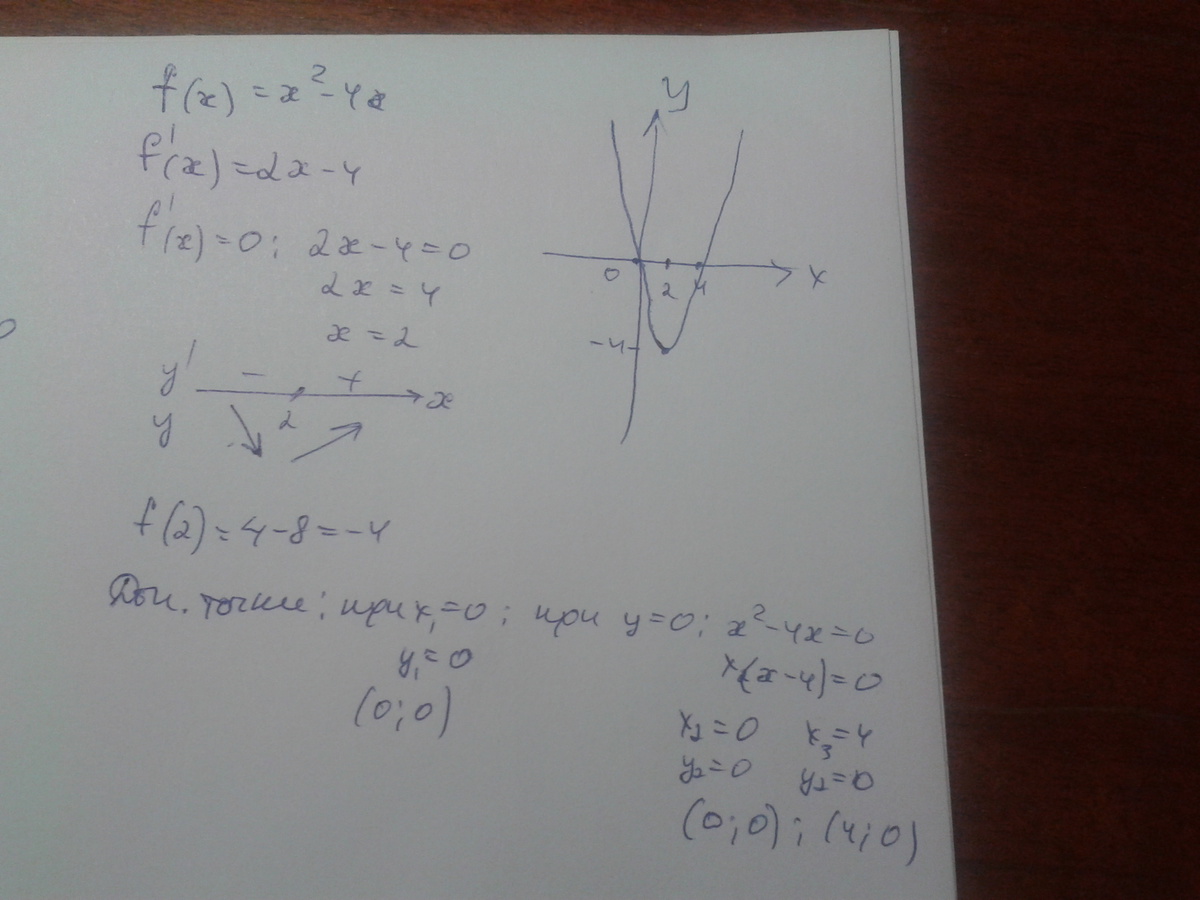 f(x) = x² - 4x
f'(x) = 2x - 4
f'(x) = 0; 2x - 4 = 0
2x = 4
x = 2
y' - + x
y 2
f(2) = 4 - 8 = -4
y
0 2 4 x
-4
Доп. точки: при x₁ = 0; при y = 0; x² - 4x = 0
y₁ = 0 x(x - 4) = 0
(0; 0) x₂ = 0 x₃ = 4
y₂ = 0 y₂ = 0
(0; 0); (4; 0)